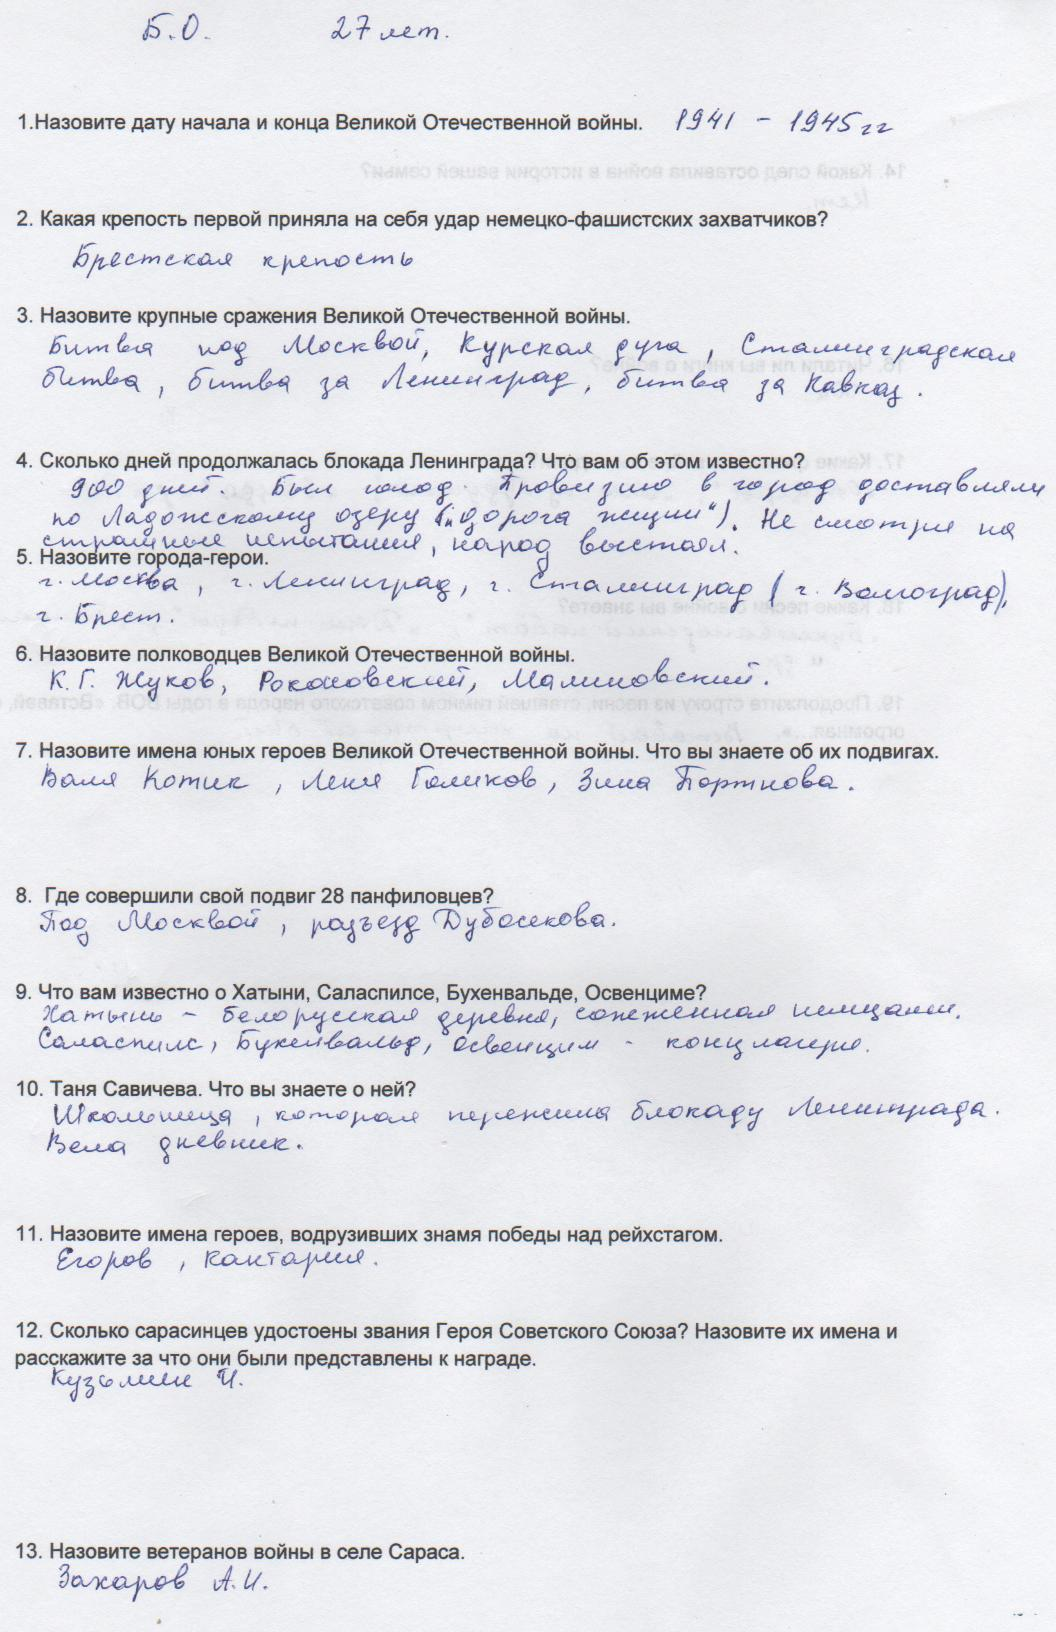 Б.О. 27 лет.
1.Назовите дату начала и конца Великой Отечественной войны. 1941 - 1945 гг
2. Какая крепость первой приняла на себя удар немецко-фашистских захватчиков?
Брестская крепость
3. Назовите крупные сражения Великой Отечественной войны.
Битва под Москвой, Курская дуга, Сталинградская
битва, битва за Ленинград, битва за Кавказ.
4. Сколько дней продолжалась блокада Ленинграда? Что вам об этом известно?
900 дней. Был голод. Провизию в город доставляли
по Ладожскому озеру („дорога жизни"). Не смотря на
страшные испытания, народ выстоял.
5. Назовите города-герои.
г. Москва, г. Ленинград, г. Сталинград (г. Волгоград),
г. Брест.
6. Назовите полководцев Великой Отечественной войны.
К.Г. Жуков, Рокоссовский, Малиновский.
7. Назовите имена юных героев Великой Отечественной войны. Что вы знаете об их подвигах.
Валя Котик, Леня Голиков, Зина Портнова.
8. Где совершили свой подвиг 28 панфиловцев?
Под Москвой, разъезд Дубосекова.
9. Что вам известно о Хатыни, Саласпилсе, Бухенвальде, Освенциме?
Хатынь - белорусская деревня, сожженная немцами.
Саласпилс, Бухенвальд, Освенцим - концлагеря.
10. Таня Савичева. Что вы знаете о ней?
Школьница, которая пережила блокаду Ленинграда.
Вела дневник.
11. Назовите имена героев, водрузивших знамя победы над рейхстагом.
Егоров, Кантария.
12. Сколько сарасинцев удостоены звания Героя Советского Союза? Назовите их имена и
расскажите за что они были представлены к награде.
Кузьмин И.
13. Назовите ветеранов войны в селе Сараса.
Захаров А.И.